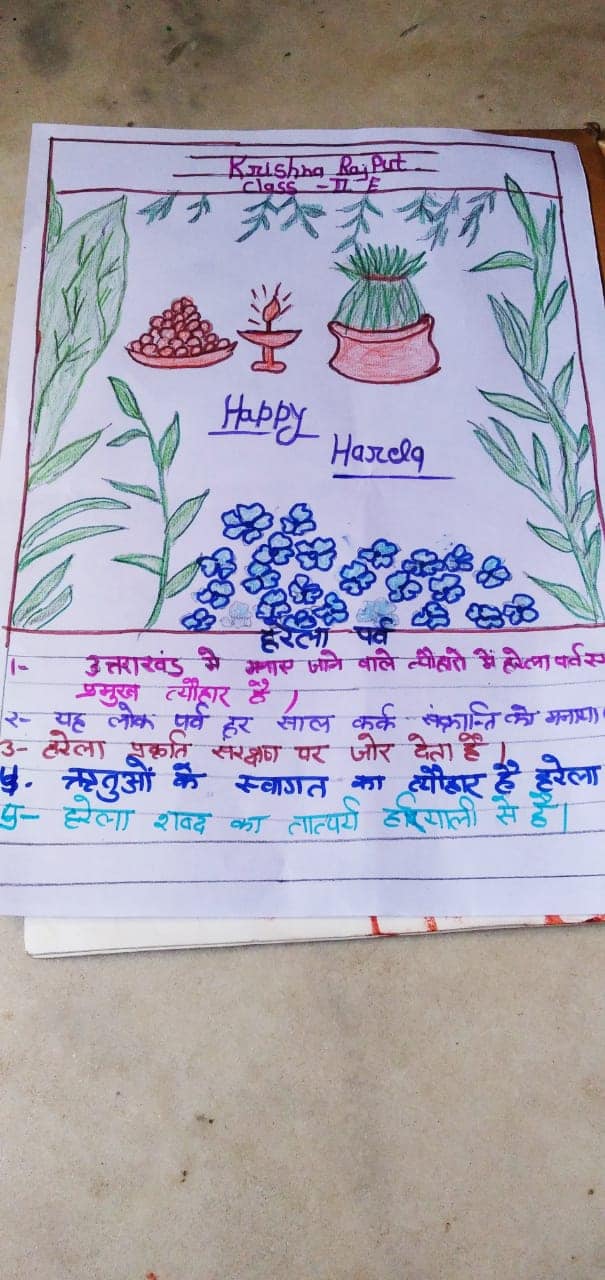 Krishna Rajput
Class - II - E
Happy
Harela
हरेला पर्व
1- उत्तराखंड मे मनाए जाने वाले त्यौहारो में हरेला पर्व
प्रमुख त्यौहार है ।
२- यह लोक पर्व हर साल कर्क संक्रान्ति को मनाया
3- हरेला प्रकृति संरक्षण पर जोर देता है ।
४. ऋतुओं के स्वागत का त्यौहार है हरेला
५- हरेला शब्द का तात्पर्य हरियाली से है।